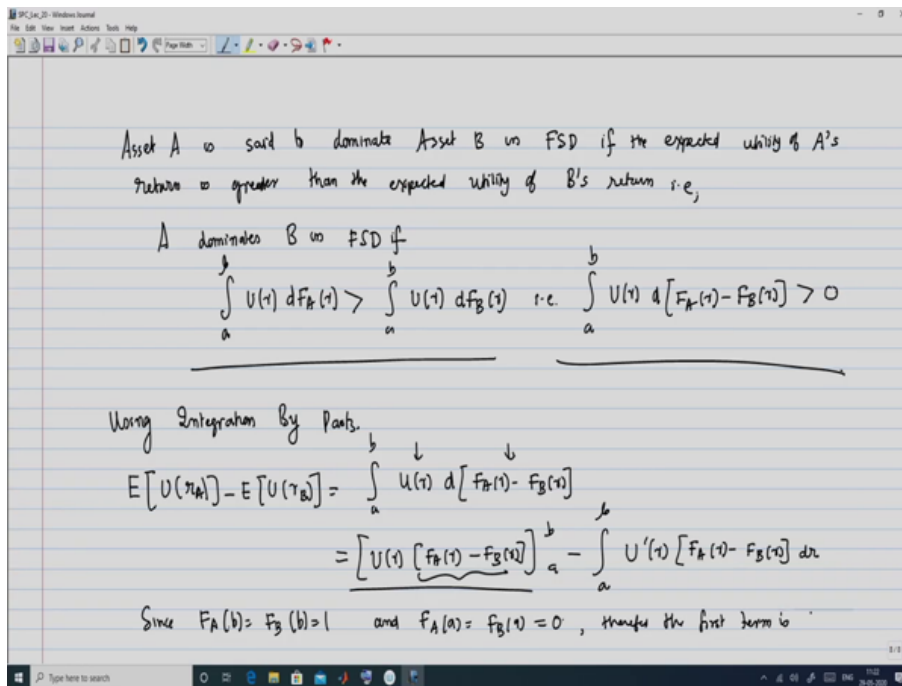 SPC_Lec_20 - Windows Journal
File Edit View Insert Actions Tools Help
Page Width
Asset A is said to dominate Asset B in FSD if the expected utility of A's
return is greater than the expected utility of B's return i.e,
A dominates B in FSD if
∫_a^b U(r) dF_A(r) > ∫_a^b U(r) dF_B(r) i.e. ∫_a^b U(r) d[F_A(r) - F_B(r)] > 0
Using Integration By Parts.
E[U(r_A)] - E[U(r_B)] = ∫_a^b U(r) d[F_A(r) - F_B(r)]
= [U(r) [F_A(r) - F_B(r)]]_a^b - ∫_a^b U'(r) [F_A(r) - F_B(r)] dr
Since F_A(b) = F_B(b) = 1 and F_A(a) = F_B(a) = 0, therefore the first term is
Type here to search
ENG
11:02
29-05-2020